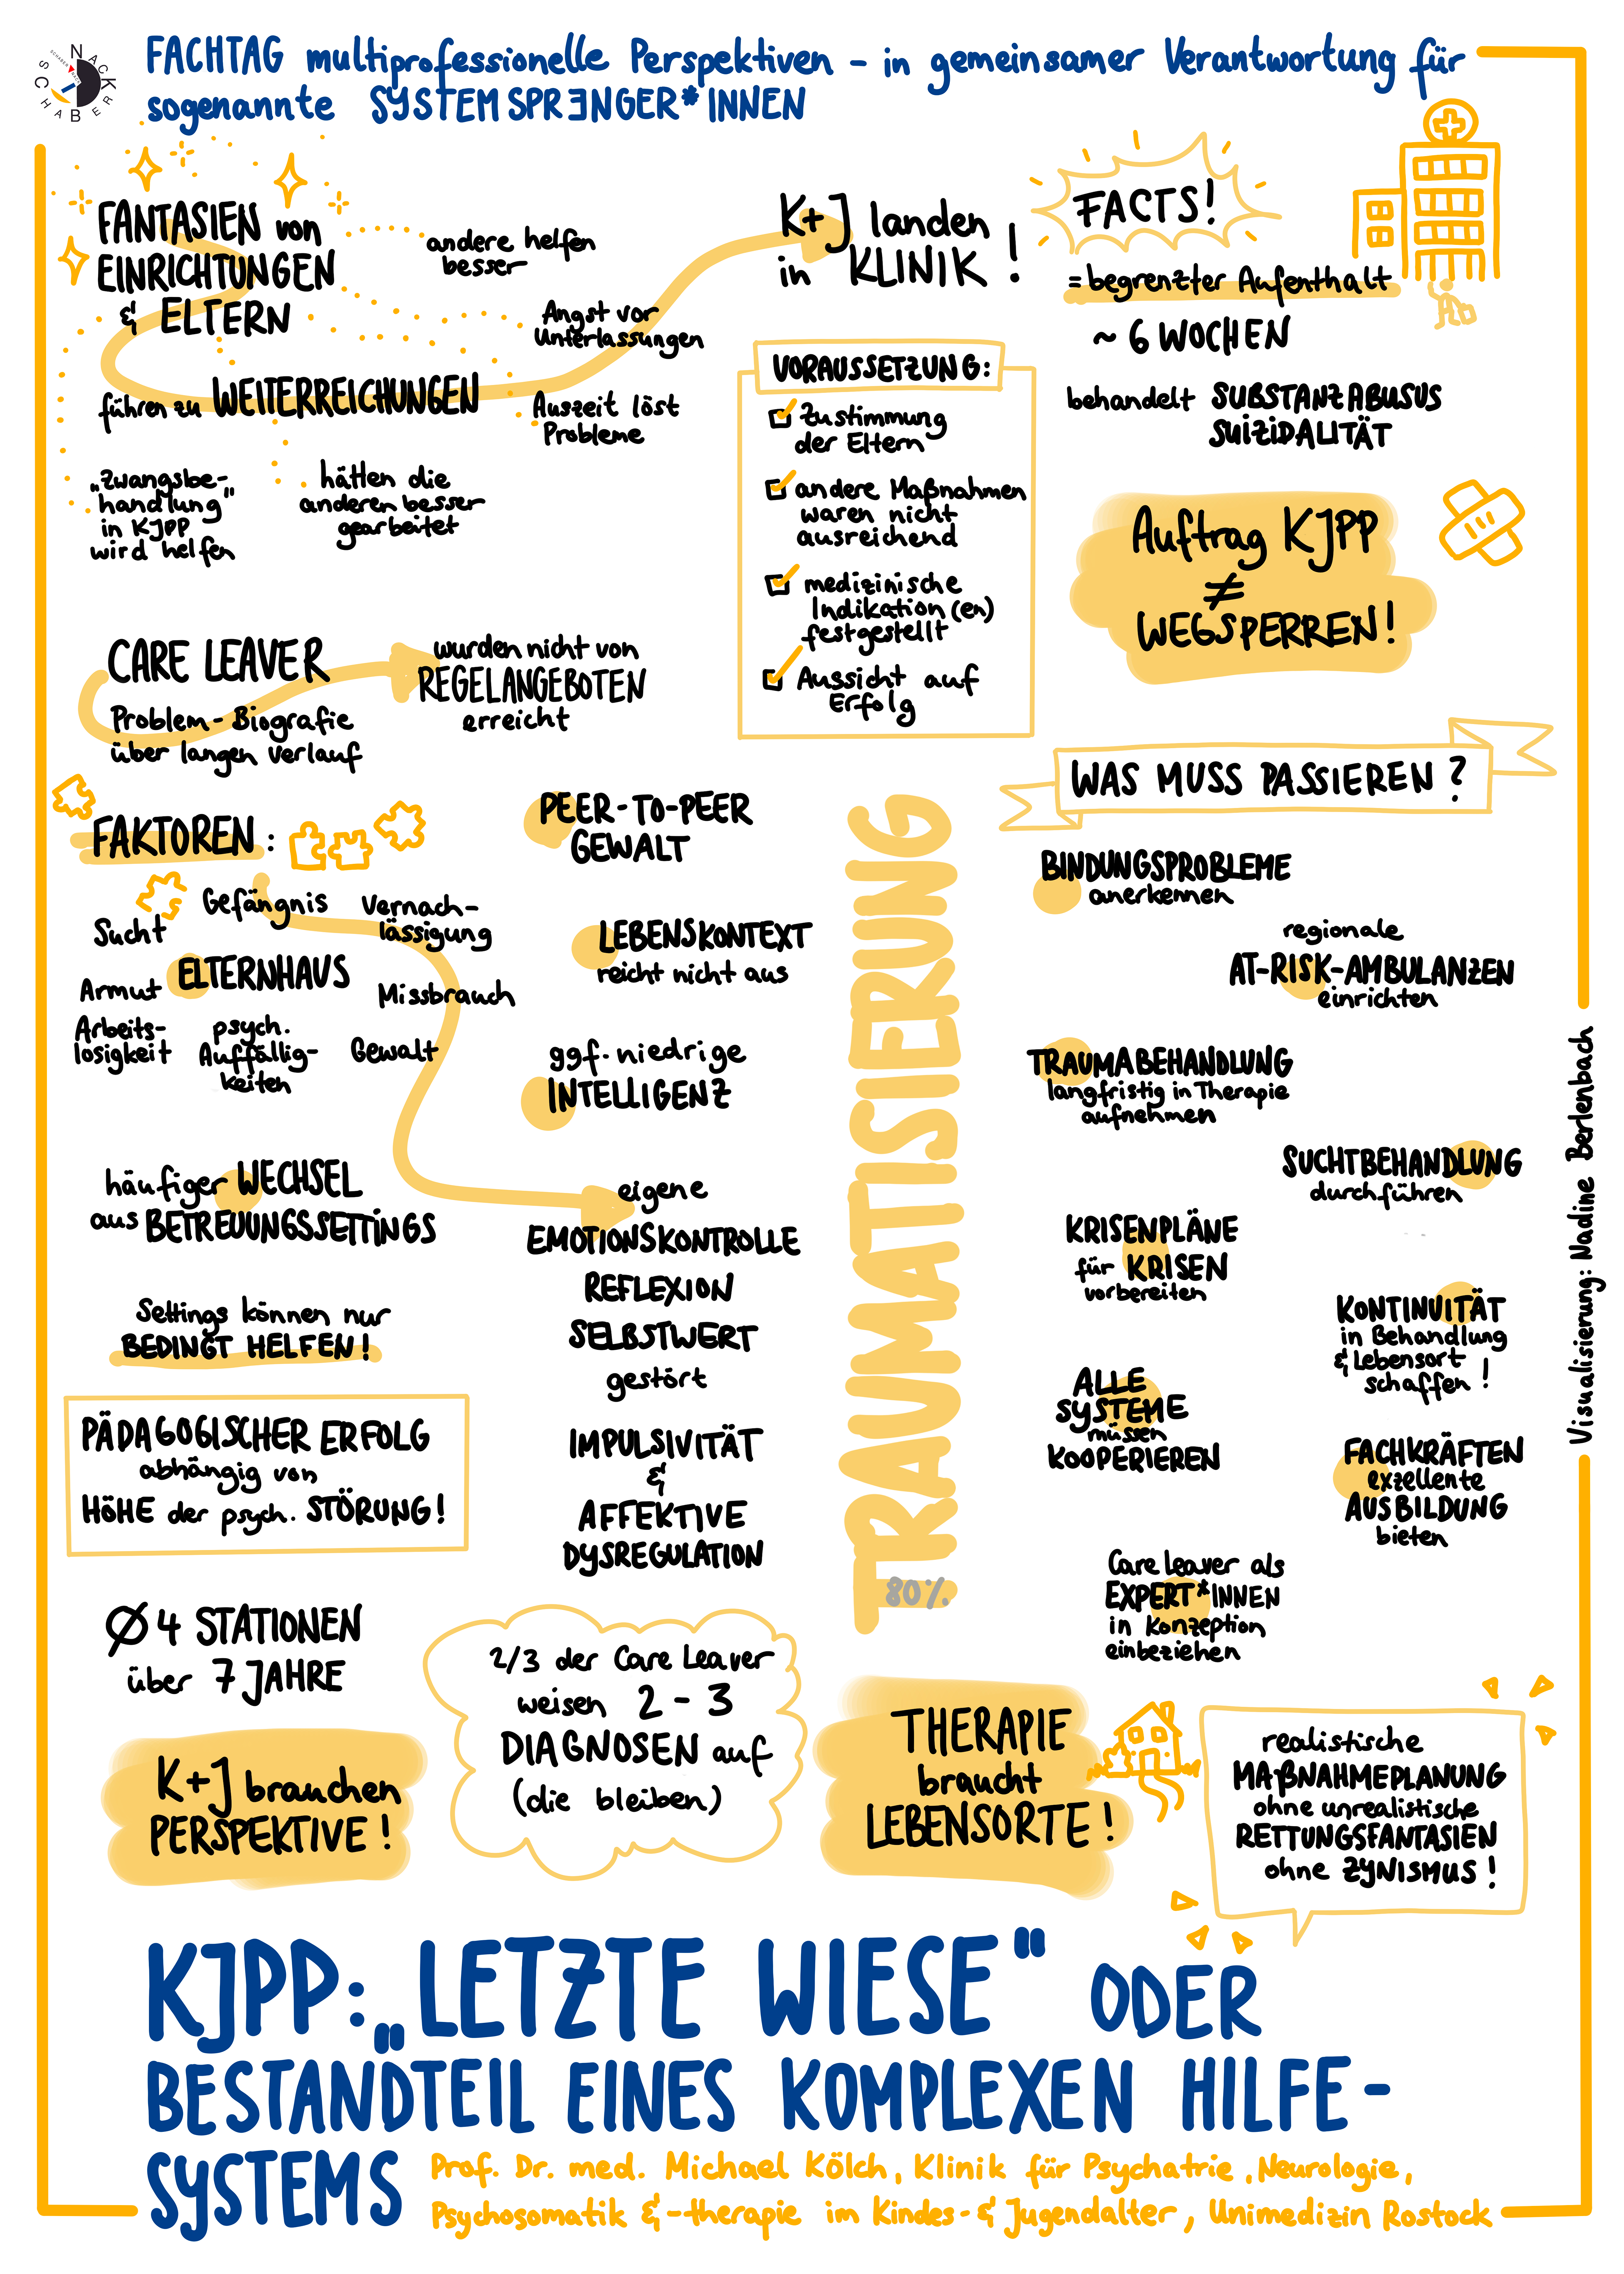 SCHABERNACK
FACHTAG multiprofessionelle Perspektiven - in gemeinsamer Verantwortung für
sogenannte SYSTEMSPRENGER*INNEN
FANTASIEN von
EINRICHTUNGEN
& ELTERN
andere helfen
besser
Angst vor
Unterlassungen
führen zu WEITERREICHUNGEN
Auszeit löst
Probleme
„Zwangsbe-
handlung"
in KJPP
wird helfen
hätten die
anderen besser
gearbeitet
K+J landen
in KLINIK!
VORAUSSETZUNG:
Zustimmung
der Eltern
andere Maßnahmen
waren nicht
ausreichend
medizinische
Indikation(en)
festgestellt
Aussicht auf
Erfolg
FACTS!
= begrenzter Aufenthalt
~ 6 WOCHEN
behandelt SUBSTANZABUSUS
SUIZIDALITÄT
Auftrag KJPP
≠
WEGSPERREN!
CARE LEAVER
Problem-Biografie
über langen Verlauf
wurden nicht von
REGELANGEBOTEN
erreicht
FAKTOREN:
Gefängnis
Vernach-
lässigung
Sucht
ELTERNHAUS
Armut
Missbrauch
Arbeits-
losigkeit
psych.
Auffällig-
keiten
Gewalt
häufiger WECHSEL
aus BETREUUNGSSETTINGS
Settings können nur
BEDINGT HELFEN!
PÄDAGOGISCHER ERFOLG
abhängig von
HÖHE der psych. STÖRUNG!
Ø 4 STATIONEN
über 7 JAHRE
K+J brauchen
PERSPEKTIVE!
PEER-TO-PEER
GEWALT
LEBENSKONTEXT
reicht nicht aus
ggf. niedrige
INTELLIGENZ
eigene
EMOTIONSKONTROLLE
REFLEXION
SELBSTWERT
gestört
IMPULSIVITÄT
&
AFFEKTIVE
DYSREGULATION
2/3 der Care Leaver
weisen 2-3
DIAGNOSEN auf
(die bleiben)
TRAUMATISIERUNG
80%
THERAPIE
braucht
LEBENSORTE!
WAS MUSS PASSIEREN?
BINDUNGSPROBLEME
anerkennen
regionale
AT-RISK-AMBULANZEN
einrichten
TRAUMABEHANDLUNG
langfristig in Therapie
aufnehmen
SUCHTBEHANDLUNG
durchführen
KRISENPLÄNE
für KRISEN
vorbereiten
KONTINUITÄT
in Behandlung
& Lebensort
schaffen!
ALLE
SYSTEME
müssen
KOOPERIEREN
FACHKRÄFTEN
exzellente
AUSBILDUNG
bieten
Care leaver als
EXPERT*INNEN
in Konzeption
einbeziehen
realistische
MAßNAHMEPLANUNG
ohne unrealistische
RETTUNGSFANTASIEN
ohne ZYNISMUS!
Visualisierung: Nadine Bertenbach
KJPP: „LETZTE WIESE" ODER
BESTANDTEIL EINES KOMPLEXEN HILFE-
SYSTEMS
Prof. Dr. med. Michael Kölch, Klinik für Psychatrie, Neurologie,
Psychosomatik & -therapie im Kindes- & Jugendalter, Unimedizin Rostock